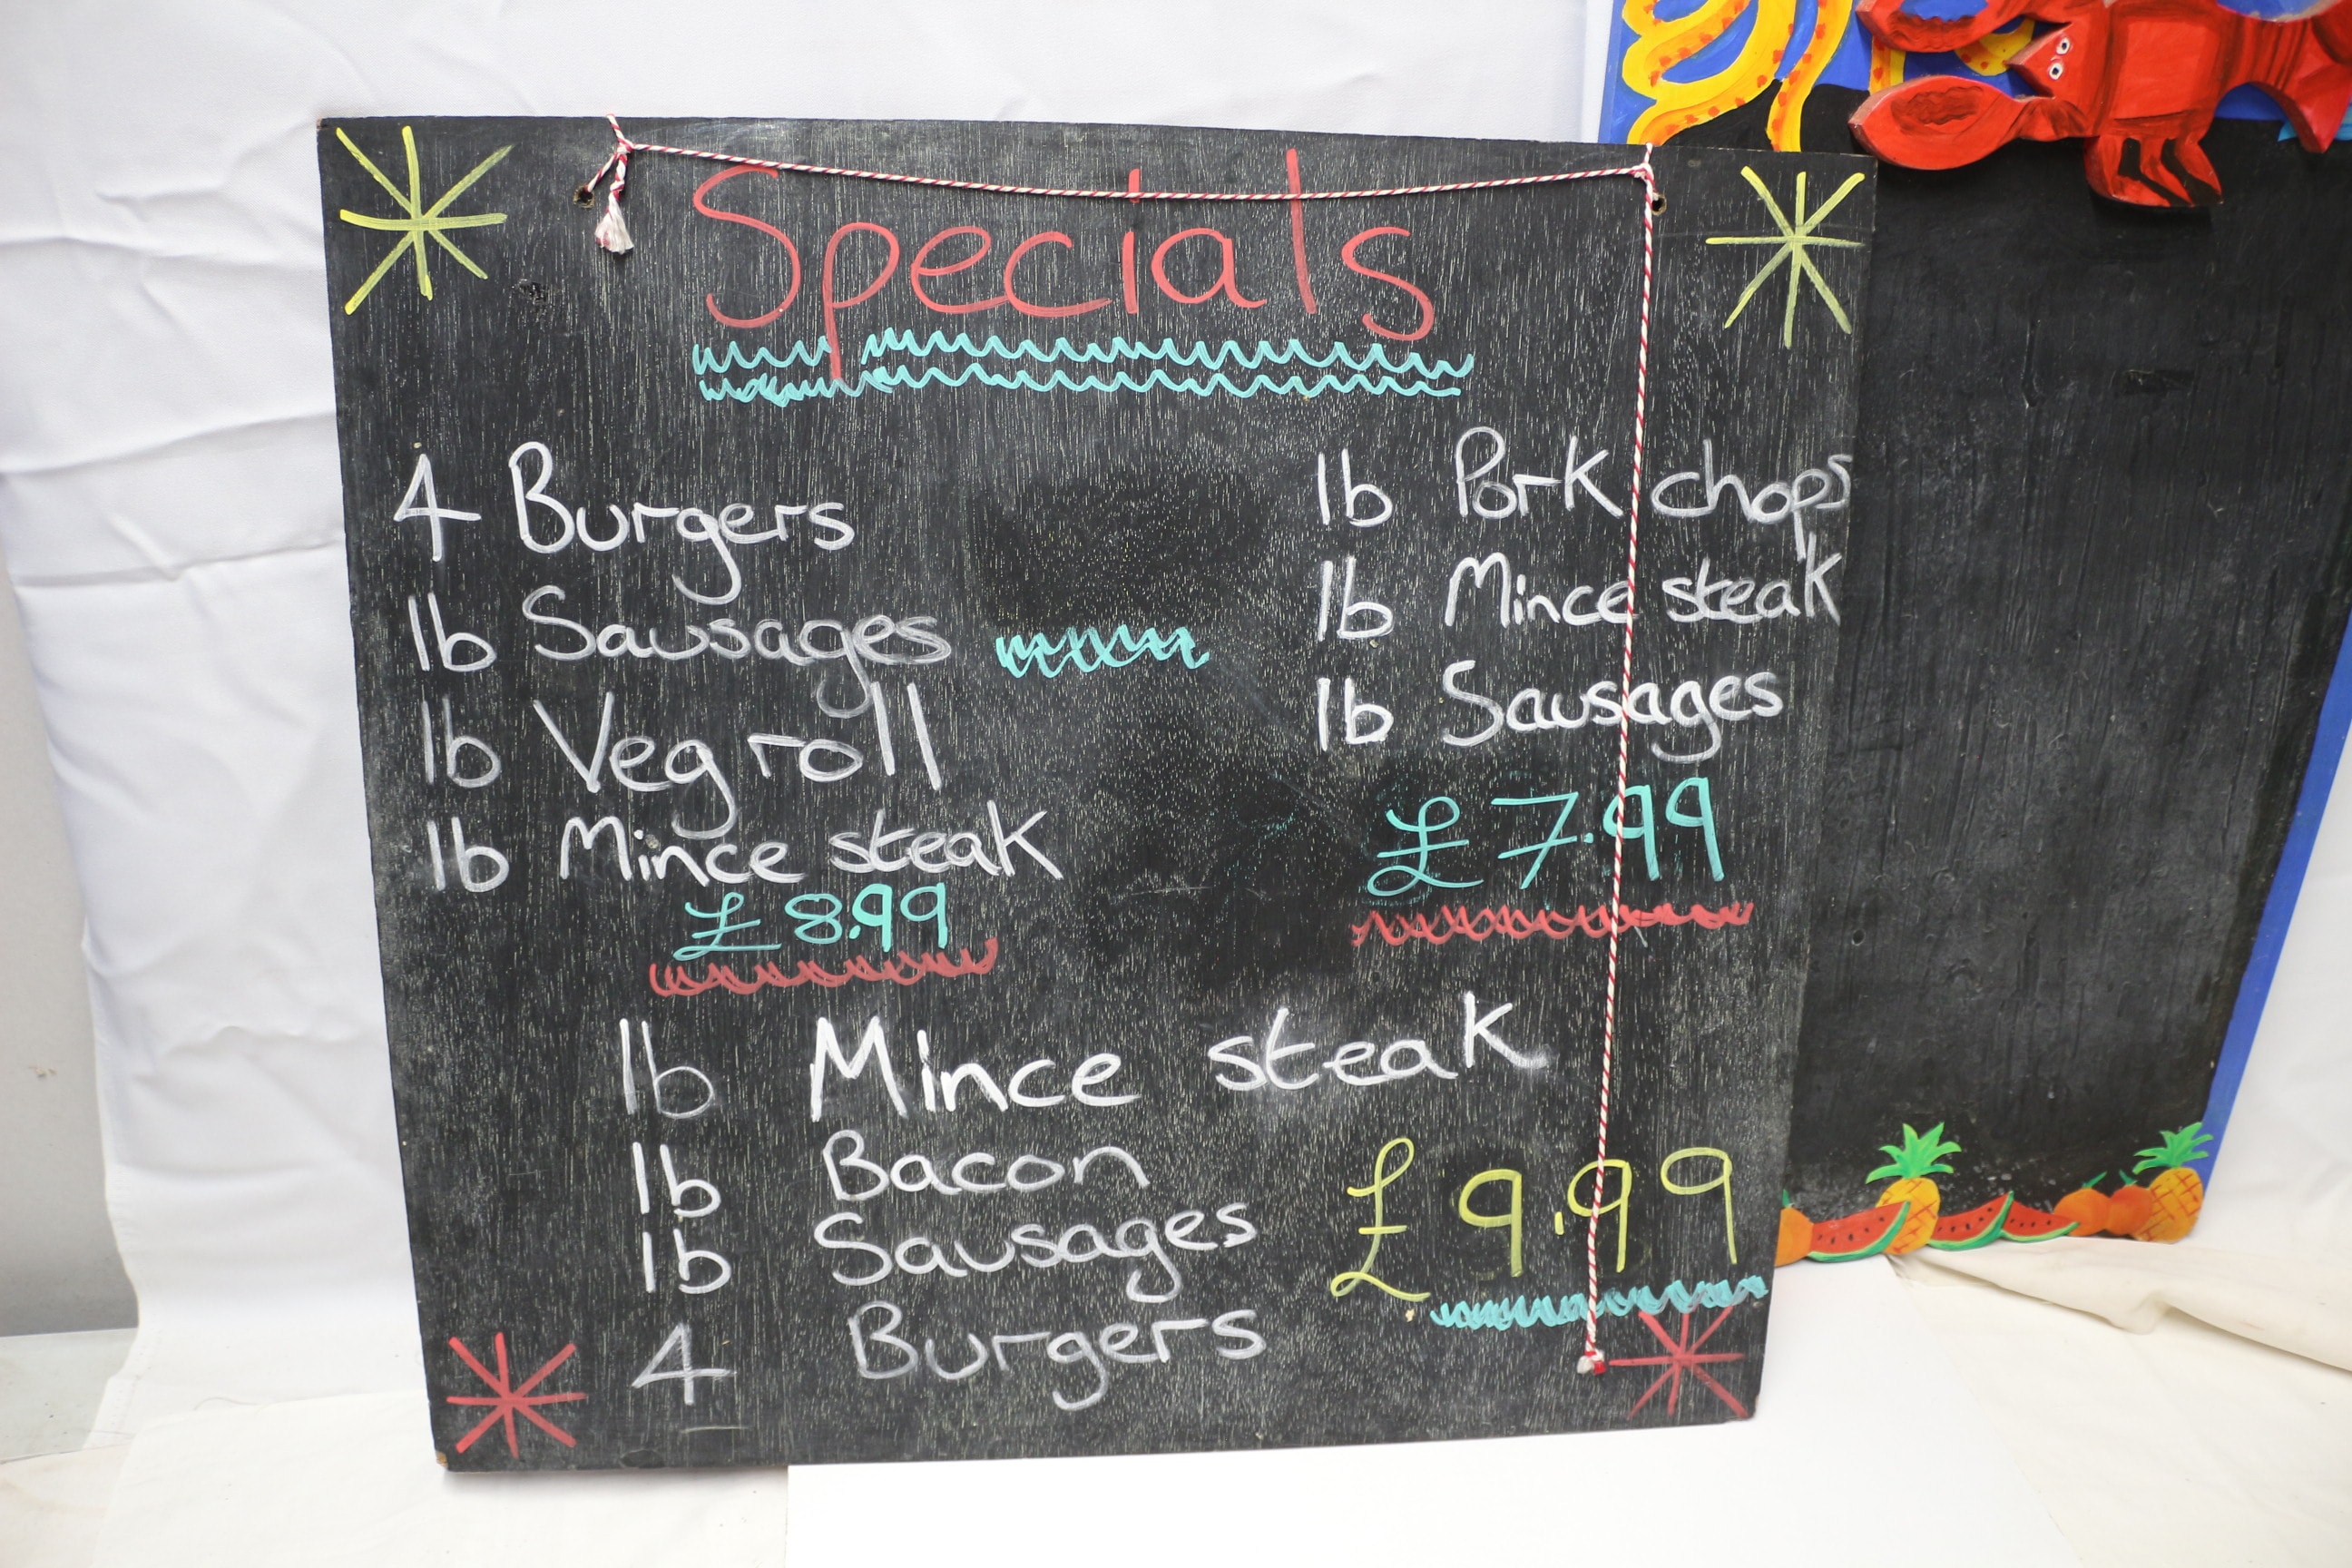 Specials
4 Burgers
lb Sausages
lb Veg roll
lb Mince steak
£8.99
lb Pork chops
lb Mince steak
lb Sausages
£7.99
lb Mince steak
lb Bacon
lb Sausages
4 Burgers
£9.99